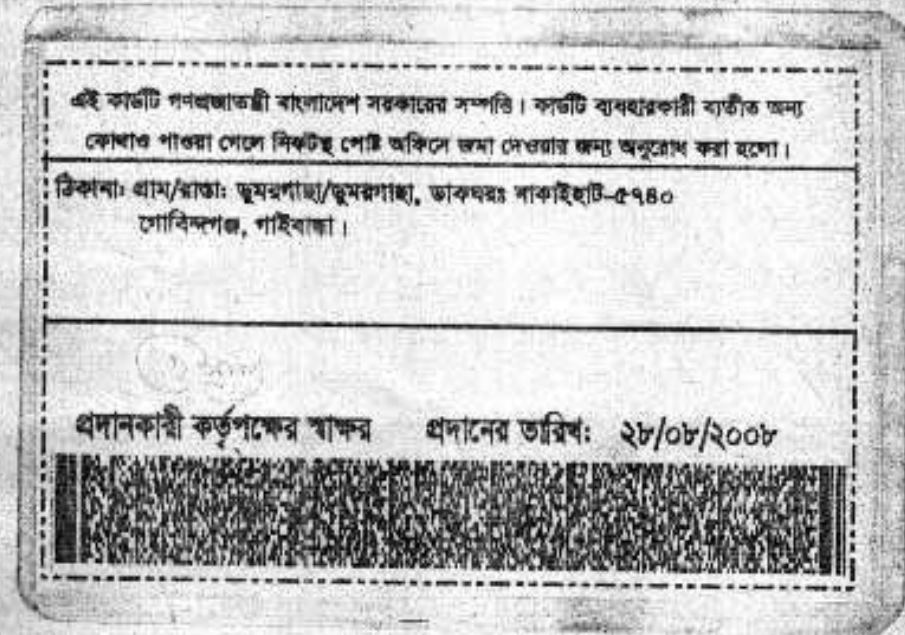 এই কার্ডটি গণপ্রজাতন্ত্রী বাংলাদেশ সরকারের সম্পত্তি। কার্ডটি ব্যবহারকারী ব্যতীত অন্য
কোথাও পাওয়া গেলে নিকটস্থ পোষ্ট অফিসে জমা দেওয়ার জন্য অনুরোধ করা হলো।
ঠিকানা: গ্রাম/রাস্তা: ডুমরগাছা/ডুমরগাছা, ডাকঘরঃ নাকাইহাট-৫৭৪০
গোবিন্দগঞ্জ, গাইবান্ধা।
প্রদানকারী কর্তৃপক্ষের স্বাক্ষর প্রদানের তারিখ: ২৮/০৮/২০০৮